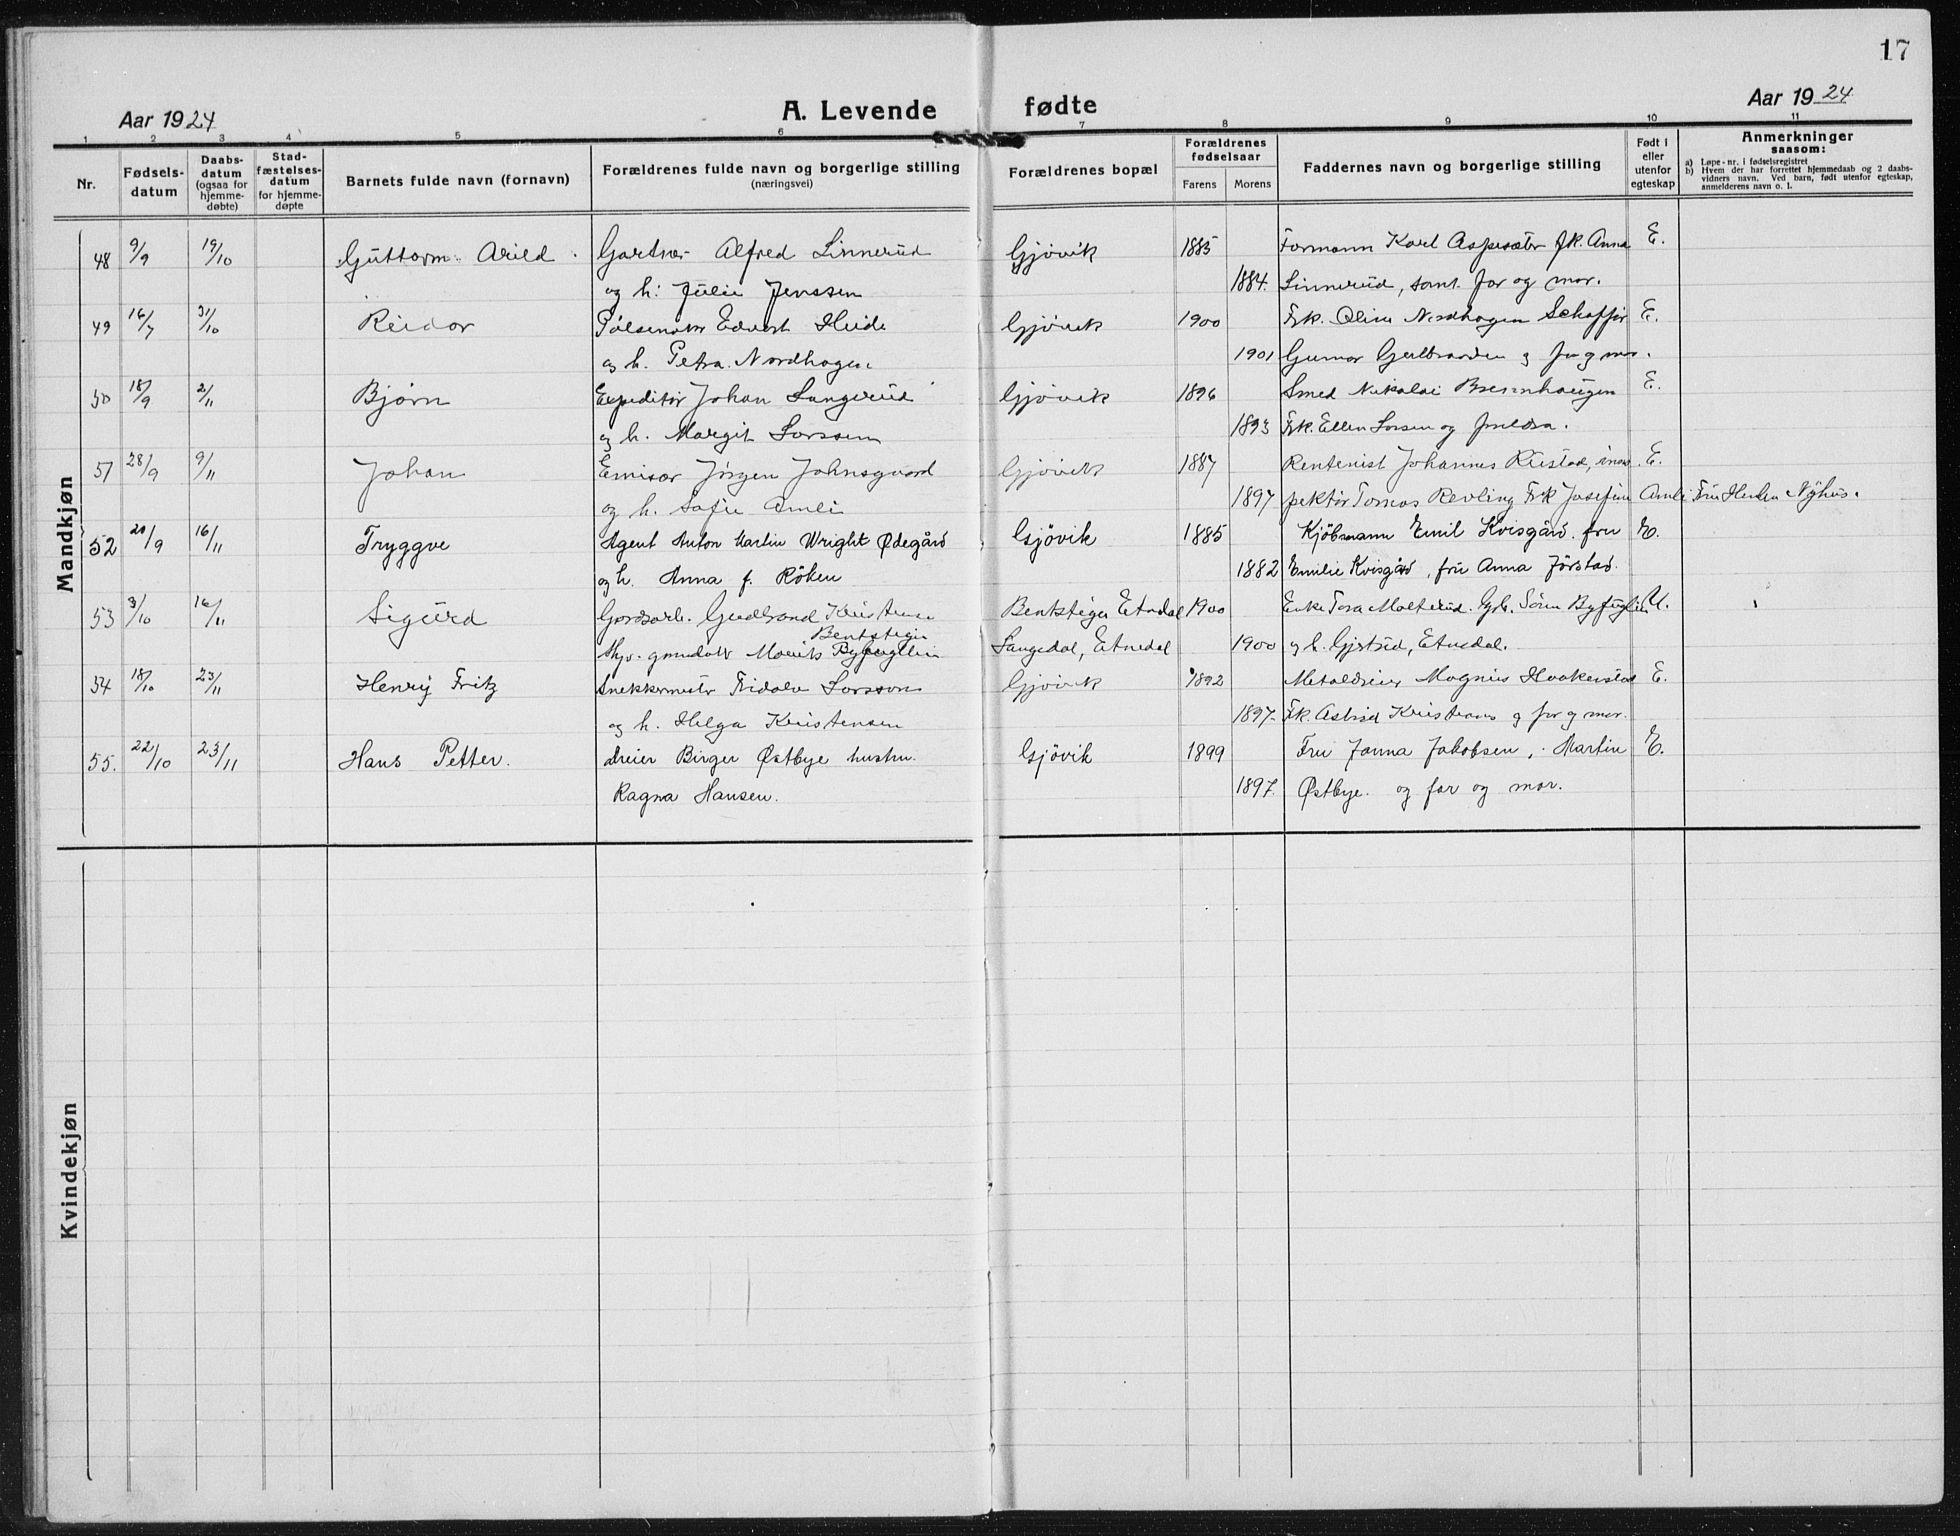 17
Aar 1924 A. Levende fødte Aar 1924
1 2 3 4 5 6 7 8 9 10 11
Nr. Fødselsdatum Daabsdatum (ogsaa for hjemmedøbte) Stadfæstelsesdatum for hjemmedøpte Barnets fulde navn (fornavn) Forældrenes fulde navn og borgerlige stilling (næringsvei) Forældrenes bopæl Forældrenes fødselsaar Farens Morens Faddernes navn og borgerlige stilling Født i eller utenfor egteskap Anmerkninger saasom:
a) Løpe-nr. i fødselsregistret
b) Hvem der har forrettet hjemmedaab og 2 daabsvidners navn. Ved barn, født utenfor egteskap, anmelderens navn o. l.
Mandkjøn
48 9/9 19/10 Guttorm Arild Gartner Alfred Linnerud Gjövik 1885 Formann Karl Aspesæter frk. Anna E.
og h. Julie Jenssen 1884. Linnerud, samt far og mor.
49 16/7 31/10 Reidar Pölsemaker Edvart Heide Gjövik 1900 Frk. Oline Nordhagen E.
og h. Petra Nordhagen 1901 Gunnar og far og mor.
50 18/9 2/11 Bjørn Expeditör Johan Langerud Gjövik 1896 Smed Nikolai E.
og h. Margit Larssen 1893 Frk. Ellen Larsen og foreldra.
51 28/9 9/11 Johan Emisær Jørgen Johnsgaard Gjövik 1887 Rentenist Johannes Rustad, ins- E.
og h. Sofie Amli 1897 pektör Tomas Revling Frk Josefine Amli Fru Helen Nyhus.
52 20/9 16/11 Tryggve Agent Anton Martin Wright Ødegård Gjøvik 1885 Kjöbmann Emil Kvisgård. fru E.
og h. Anna f. Röken 1882 Emilie Kvisgård, fru Anna Jörstad.
53 3/10 16/11 Sigurd Gardsarb. Gudbrand Kristensen Bentstegen Etnedal 1900 Enke Tora Molterud. Gbr. Sören Byfuglien U.
Bentstegen
Byfuglien Langedal, Etnedal 1900 og h. Gjertrud, Etnedal.
54 18/10 23/11 Henry Fritz Snekkermester Fridolv Larsson Gjövik 1892 Metaldreier Magnus Haakenstad E.
og h. Helga Kristensen 1897. Frk. Astrid og far og mor.
55. 22/10 23/11 Hans Petter. dreier Birger Østbye hustru. Gjövik 1899 Fru Janna Jakobsen, Martin E.
Ragna Hansen. 1897. Østbye. og far og mor.
Kvindekjøn